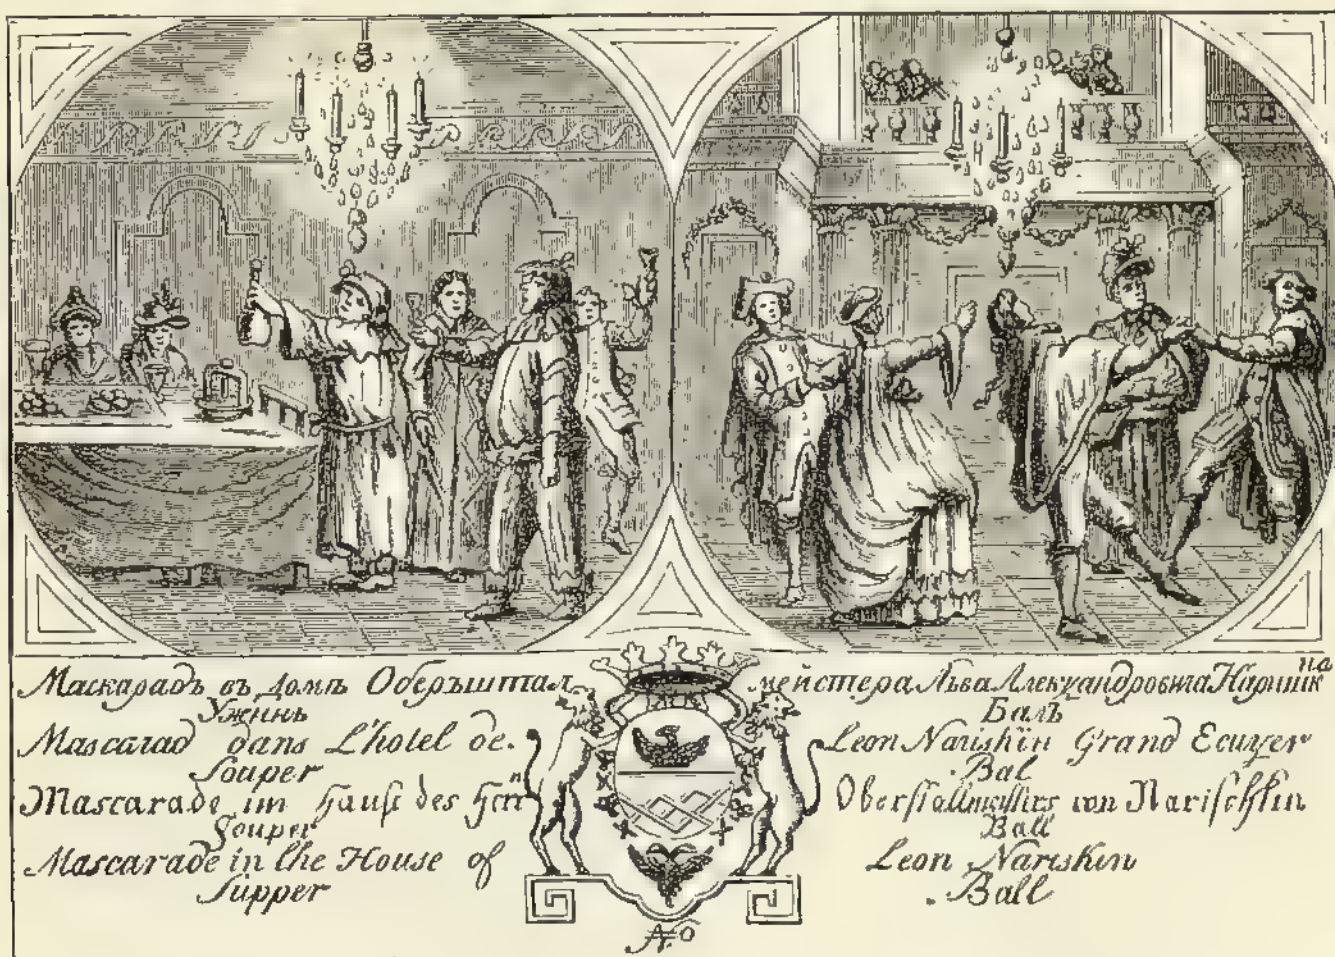 Маскарадъ въ домѣ Оберъштал мейстера Льва Александровича Наришкина
Ужинъ Балъ
Mascarad dans L'hotel de. Leon Narishkin Grand Ecuyer
Souper Bal
Mascarade im Hause des Herrn Oberstallmeisters von Narischkin
Souper Ball
Mascarade in the House of Leon Nariskin
Supper Ball
№